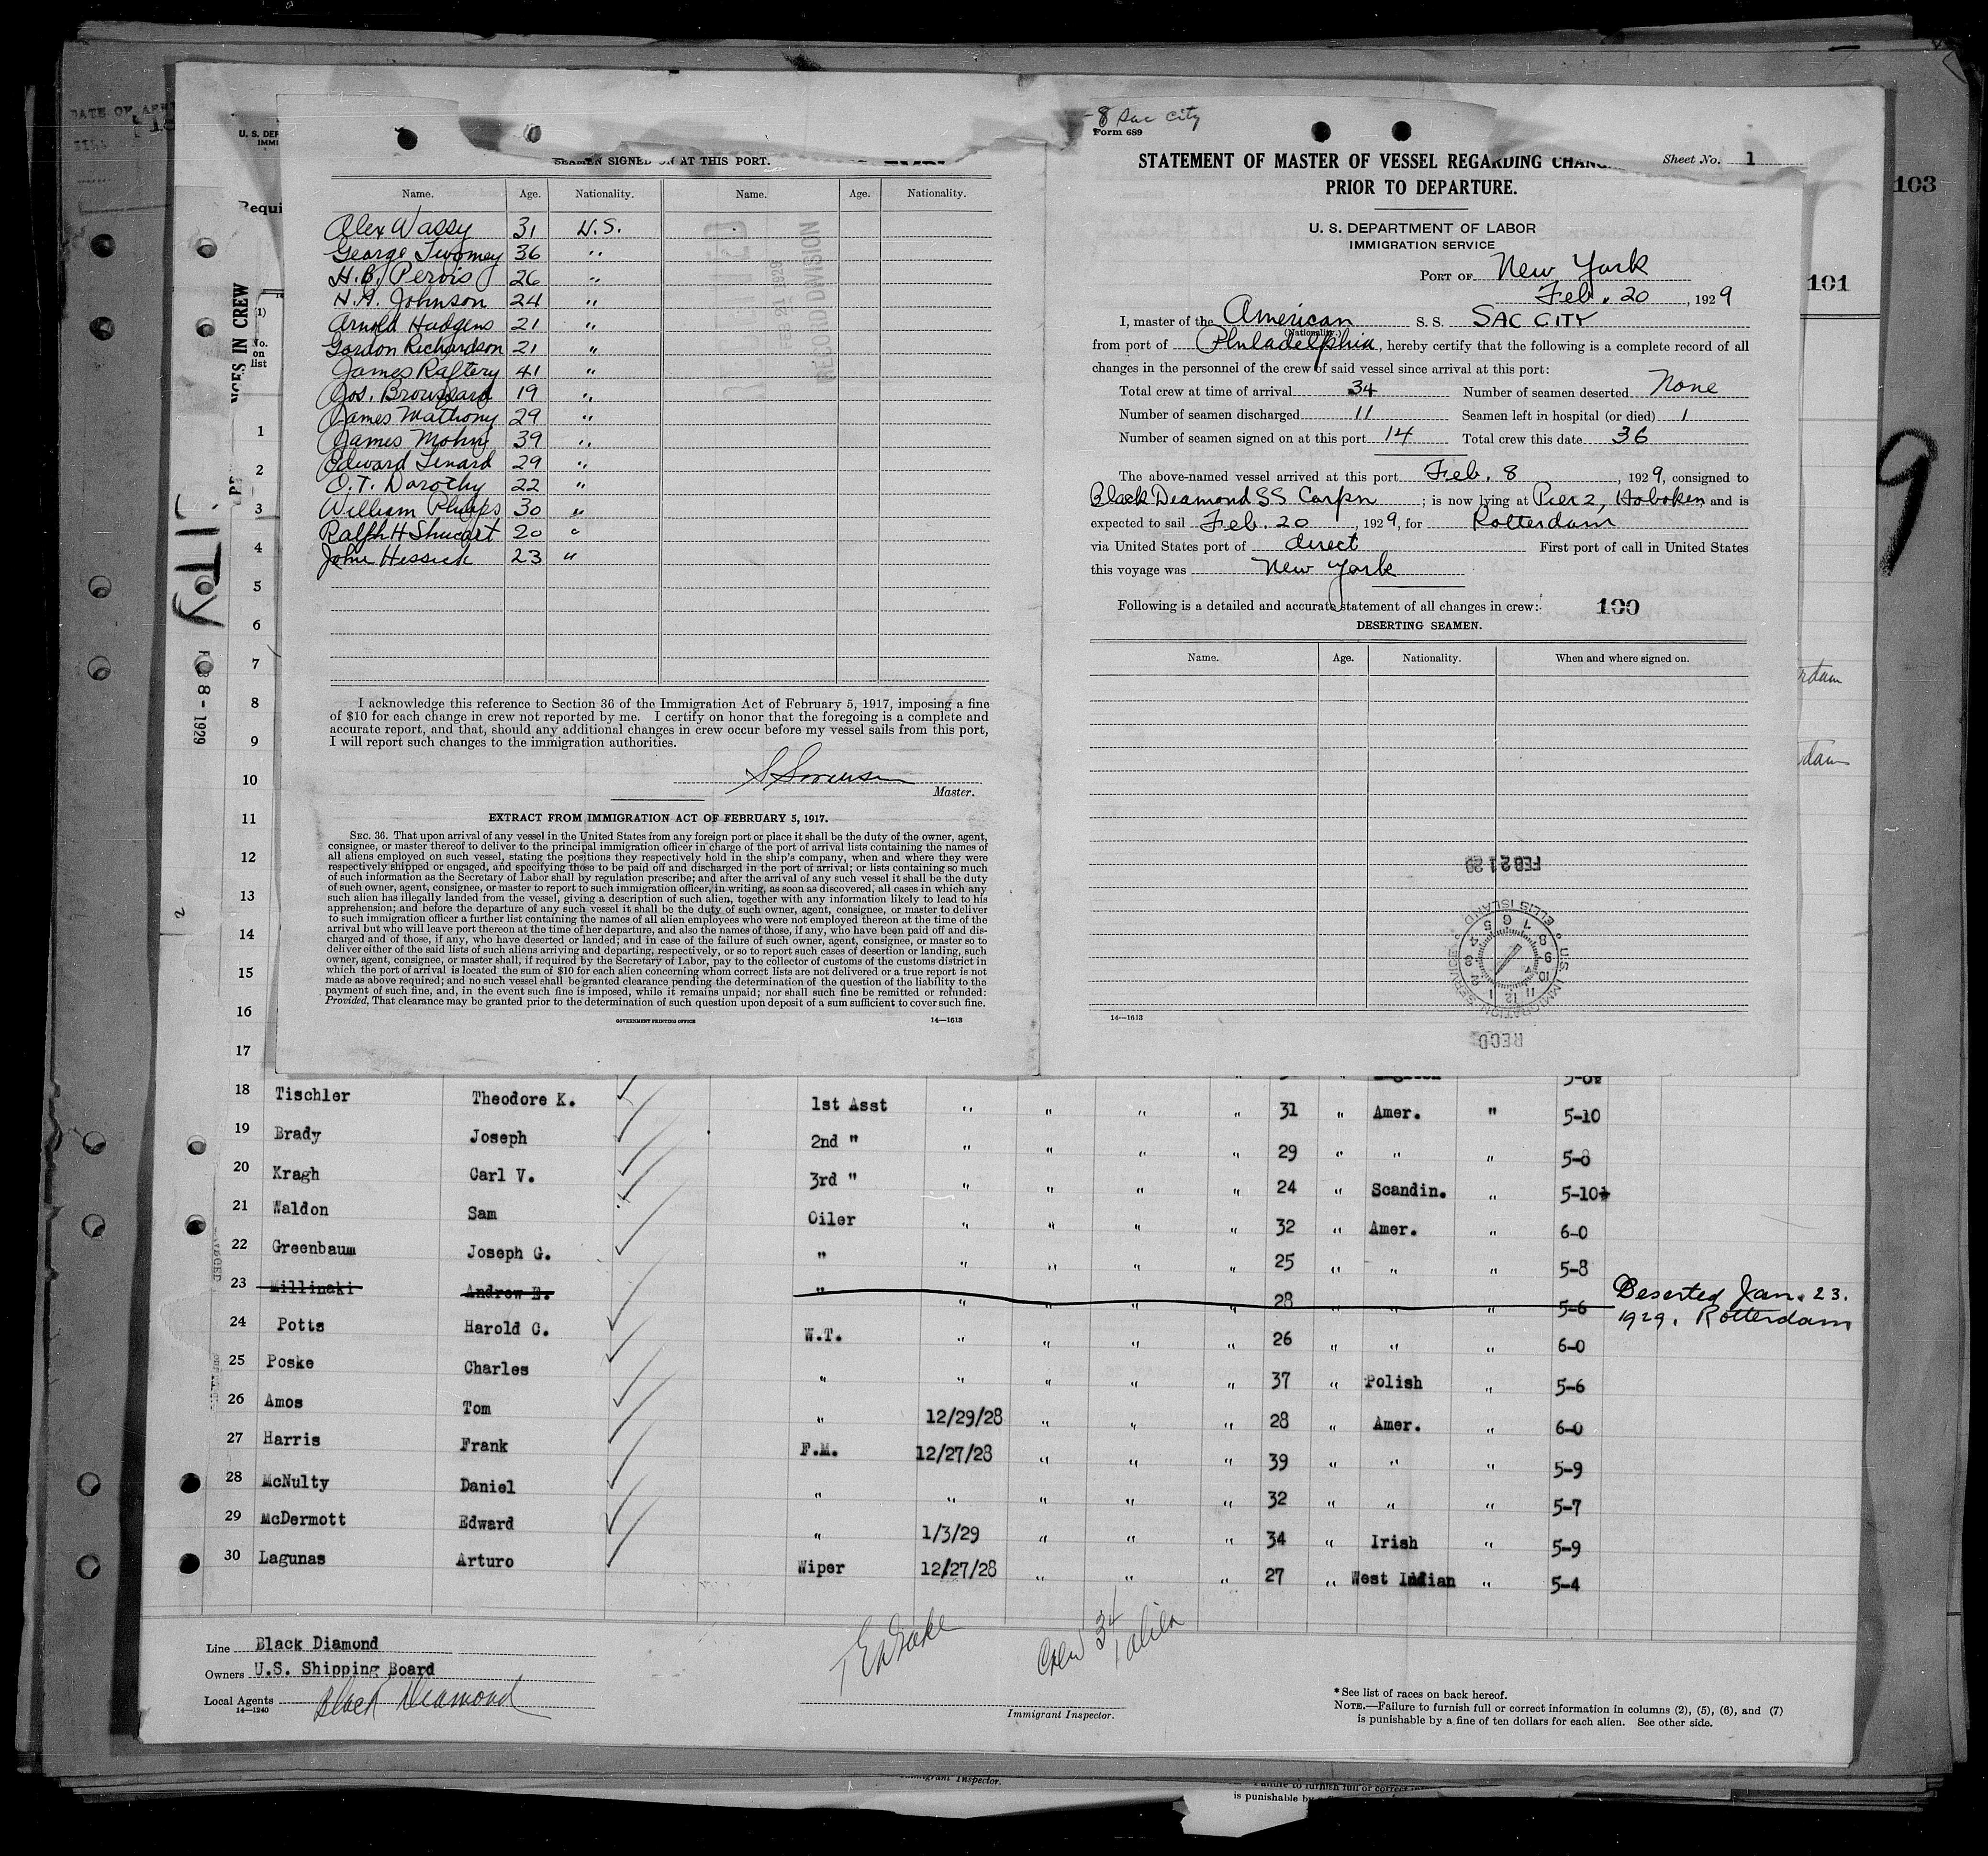 SEAMEN SIGNED ON AT THIS PORT.
Name. Age. Nationality. Name. Age. Nationality.
Alex Wassy 31 U.S.
George Twomey 36 "
H.B. Pervis 26 "
H.A. Johnson 24 "
Arnold Hudgens 21 "
Gordon Richardson 21 "
James Raftery 41 "
Jos. Broussard 19 "
James Mathony 29 "
James Mohn 39 "
Edward Lenard 29 "
O.T. Dorothy 22 "
William Phipps 30 "
Ralph H Shucart 20 "
John Hessick 23 "
RECEIVED
FEB 21 1929
RECORD DIVISION
I acknowledge this reference to Section 36 of the Immigration Act of February 5, 1917, imposing a fine
of $10 for each change in crew not reported by me. I certify on honor that the foregoing is a complete and
accurate report, and that, should any additional changes in crew occur before my vessel sails from this port,
I will report such changes to the immigration authorities.
S Sorensen
Master.
EXTRACT FROM IMMIGRATION ACT OF FEBRUARY 5, 1917.
SEC. 36. That upon arrival of any vessel in the United States from any foreign port or place it shall be the duty of the owner, agent,
consignee, or master thereof to deliver to the principal immigration officer in charge of the port of arrival lists containing the names of
all aliens employed on such vessel, stating the positions they respectively hold in the ship's company, when and where they were
respectively shipped or engaged, and specifying those to be paid off and discharged in the port of arrival; or lists containing so much
of such information as the Secretary of Labor shall by regulation prescribe; and after the arrival of any such vessel it shall be the duty
of such owner, agent, consignee, or master to report to such immigration officer, in writing, as soon as discovered, all cases in which any
such alien has illegally landed from the vessel, giving a description of such alien, together with any information likely to lead to his
apprehension; and before the departure of any such vessel it shall be the duty of such owner, agent, consignee, or master to deliver
to such immigration officer a further list containing the names of all alien employees who were not employed thereon at the time of the
arrival but who will leave port thereon at the time of her departure, and also the names of those, if any, who have been paid off and dis-
charged and of those, if any, who have deserted or landed; and in case of the failure of such owner, agent, consignee, or master so to
deliver either of the said lists of such aliens arriving and departing, respectively, or so to report such cases of desertion or landing, such
owner, agent, consignee, or master shall, if required by the Secretary of Labor, pay to the collector of customs of the customs district in
which the port of arrival is located the sum of $10 for each alien concerning whom correct lists are not delivered or a true report is not
made as above required; and no such vessel shall be granted clearance pending the determination of the question of the liability to the
payment of such fine, and, in the event such fine is imposed, while it remains unpaid; nor shall such fine be remitted or refunded:
Provided, That clearance may be granted prior to the determination of such question upon deposit of a sum sufficient to cover such fine.
GOVERNMENT PRINTING OFFICE 14—1613
-8 Sac City
Form 689
STATEMENT OF MASTER OF VESSEL REGARDING CHANG
Sheet No. 1
PRIOR TO DEPARTURE.
U. S. DEPARTMENT OF LABOR
IMMIGRATION SERVICE
PORT OF New York
Feb. 20, 1929
I, master of the American S. S. SAC CITY
(Nationality.)
from port of Philadelphia, hereby certify that the following is a complete record of all
changes in the personnel of the crew of said vessel since arrival at this port:
Total crew at time of arrival 34 Number of seamen deserted None
Number of seamen discharged 11 Seamen left in hospital (or died) 1
Number of seamen signed on at this port 14 Total crew this date 36
The above-named vessel arrived at this port Feb. 8, 1929, consigned to
Black Deamond SS Corpn; is now lying at Pier 2, Hoboken, and is
expected to sail Feb. 20, 1929, for Rotterdam
via United States port of direct First port of call in United States
this voyage was New York
Following is a detailed and accurate statement of all changes in crew: 100
DESERTING SEAMEN.
Name. Age. Nationality. When and where signed on.
FEB 21 29
U.S. IMMIGRATION SERVICE ELLIS ISLAND
RECD
14—1613
103
101
9
rdam
dam
DATE OF
U. S. DEP
IMMI
Requi
NGES IN CREW
(1)
No.
on
list
ITY
FEB 8 - 1929
1
2
3
4
5
6
7
8
9
10
11
12
13
14
15
16
17
18 Tischler Theodore K. 1st Asst " " " " 31 " Amer. " 5-10
19 Brady Joseph 2nd " " " " " 29 " " " 5-8
20 Kragh Carl V. 3rd " " " " " 24 " Scandin. " 5-10½
21 Waldon Sam Oiler " " " " 32 " Amer. " 6-0
22 Greenbaum Joseph G. " " " " " 25 " " " 5-8
23 Millinaki Andrew E. " " " " " 28 " " " 5-6 Deserted Jan. 23.
1929. Rotterdam
24 Potts Harold C. W.T. " " " " 26 " " " 6-0
25 Poske Charles " " " " " 37 " Polish " 5-6
26 Amos Tom " 12/29/28 " " " 28 " Amer. " 6-0
27 Harris Frank F.M. 12/27/28 " " " 39 " " " 5-9
28 McNulty Daniel " " " " " 32 " " " 5-7
29 McDermott Edward " 1/3/29 " " " 34 " Irish " 5-9
30 Lagunas Arturo Wiper 12/27/28 " " " 27 " West Indian " 5-4
Line Black Diamond
Owners U.S. Shipping Board
Local Agents Black Diamond
14—1240
Crew 34
1 alien
Immigrant Inspector.
*See list of races on back hereof.
NOTE.—Failure to furnish full or correct information in columns (2), (5), (6), and (7)
is punishable by a fine of ten dollars for each alien. See other side.
Immigrant Inspector.
Failure to furnish full or correct
is punishable by